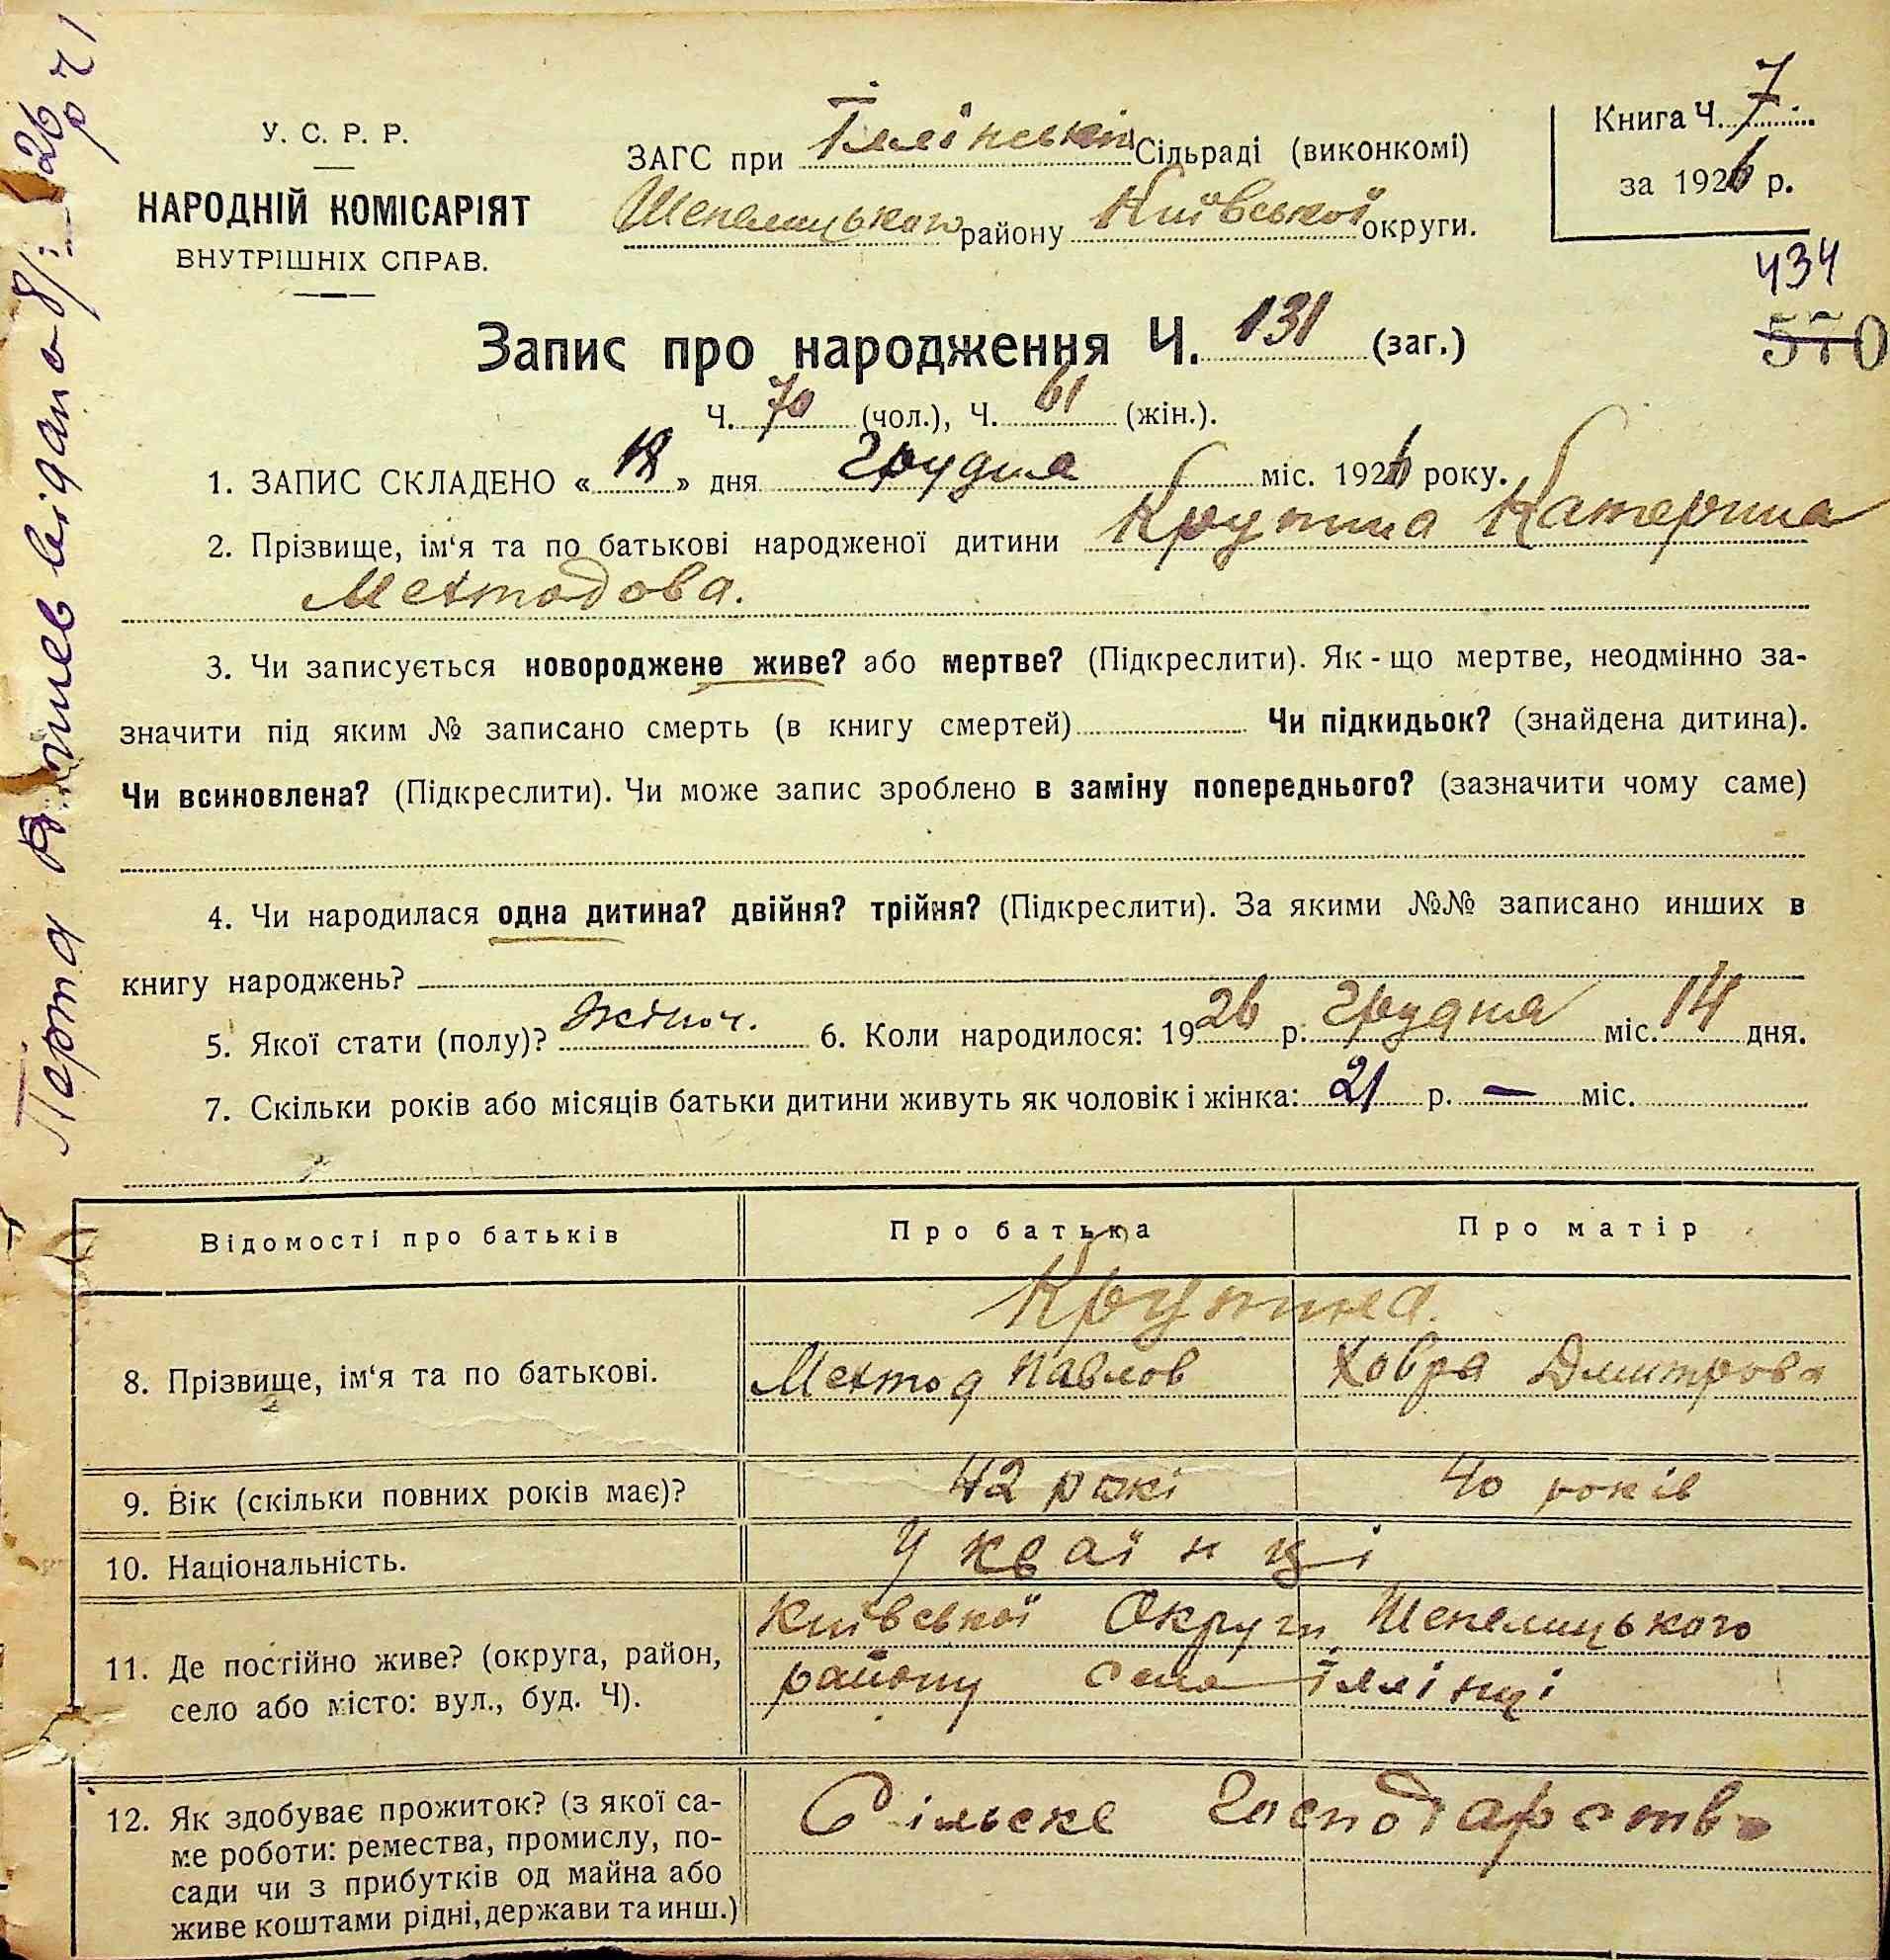 У. С. Р. Р.
НАРОДНІЙ КОМІСАРІЯТ
ВНУТРІШНІХ СПРАВ.
ЗАГС при Іллінській Сільраді (виконкомі)
Шепелицького району Київської округи.
Книга Ч. 7
за 1926 р.
434
570
Запис про народження Ч. 131 (заг.)
Ч. 70 (чол.), Ч. 61 (жін.).
1. ЗАПИС СКЛАДЕНО «18» дня Грудня міс. 1926 року.
2. Прізвище, ім‘я та по батькові народженої дитини Крупина Катерина
Метходова.
3. Чи записується новороджене живе? або мертве? (Підкреслити). Як-що мертве, неодмінно за-
значити під яким № записано смерть (в книгу смертей) Чи підкидьок? (знайдена дитина).
Чи всиновлена? (Підкреслити). Чи може запис зроблено в заміну попереднього? (зазначити чому саме)
4. Чи народилася одна дитина? двійня? трійня? (Підкреслити). За якими №№ записано инших в
книгу народжень?
5. Якої стати (полу)? жіноч. 6. Коли народилося: 1926 р. Грудня міс. 14 дня.
7. Скільки років або місяців батьки дитини живуть як чоловік і жінка: 21 р. — міс.
Відомості про батьків Про батька Про матір
8. Прізвище, ім‘я та по батькові.
Крупина.
Метход Павлов Ховра Дмитрова
9. Вік (скільки повних років має)? 42 рокі 40 років
10. Національність. Українці
11. Де постійно живе? (округа, район,
село або місто: вул., буд. Ч).
Київської Округи Шепелицького
району село Іллінці
12. Як здобуває прожиток? (з якої са-
ме роботи: ремества, промислу, по-
сади чи з прибутків од майна або
живе коштами рідні, держави та инш.)
Сільске господарство